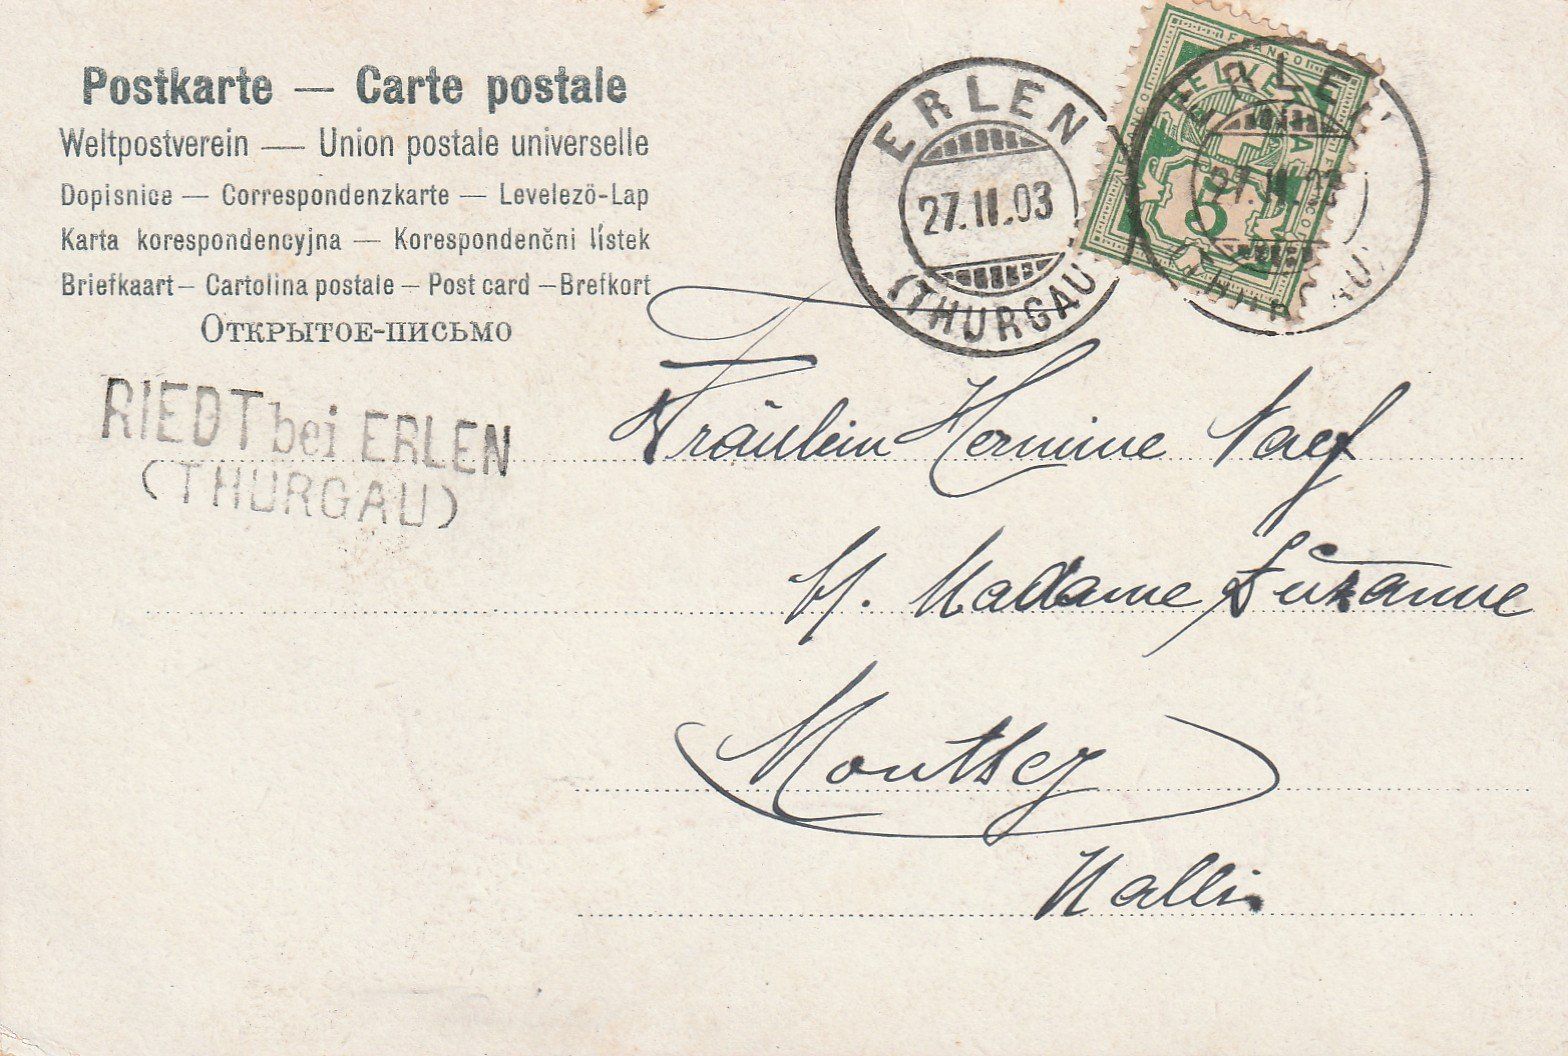 Postkarte — Carte postale
Weltpostverein — Union postale universelle
Dopisnice — Correspondenzkarte — Levelező-Lap
Karta korespondencyjna — Korespondenčni lístek
Briefkaart — Cartolina postale — Post card — Brefkort
Открытое-письмо
ERLEN
27.II.03
(THURGAU)
ERLEN
27.II.03
(THURGAU)
HELVETIA
5
RIEDT bei ERLEN
(THURGAU)
Fräulein Hermine Naef
Madame Suzanne
Monthey
Wallis